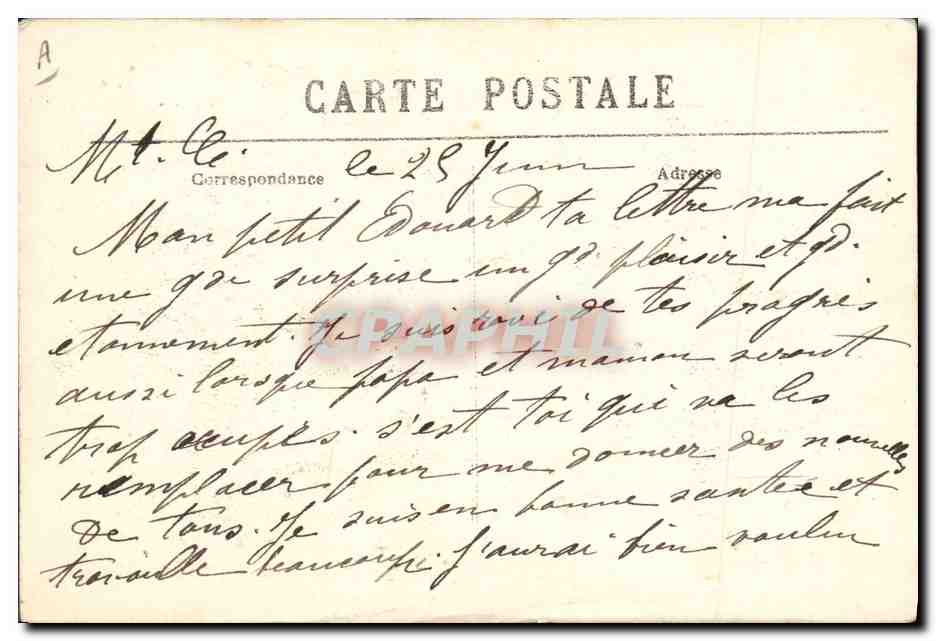 A
CARTE POSTALE
Mt. Cli. le 25 Juin
Correspondance Adresse
Mon petit Edouard ta lettre ma fait
une gde surprise un gd. plaisir et gd.
etonnement. Je suis ravie de tes progrès
CPAPHIL
aussi lorsque papa et maman seront
trop occupés. s'est toi qui va les
remplacer pour me donner des nouvelles
de tous. Je suis en bonne santée et
travaille beaucoup. J'aurai bien voulu